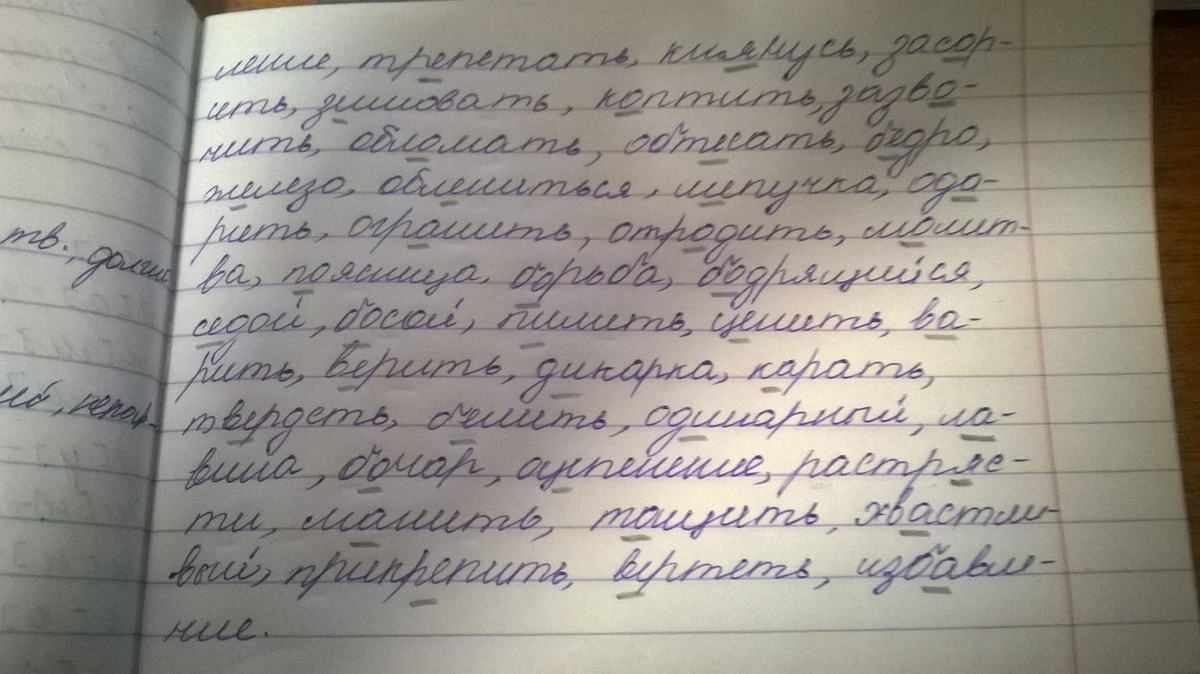 ление, трепетать, клянусь, засор-
ить, зимовать, коптить, зазво-
нить, обломать, обтесать, бедро,
железо, облениться, липучка, ода-
рить, огранить, отродить, молит-
ва, поясница, борьба, бодрящийся,
седой, босой, пилить, ценить, ва-
рить, верить, дикарка, карать,
твердеть, белить, одинарный, ла-
вина, бочар, оцепенение, растряс-
ти, манить, тощить, хвастли-
вый, прикрепить, вертеть, избавле-
ние.
тв., долгий,